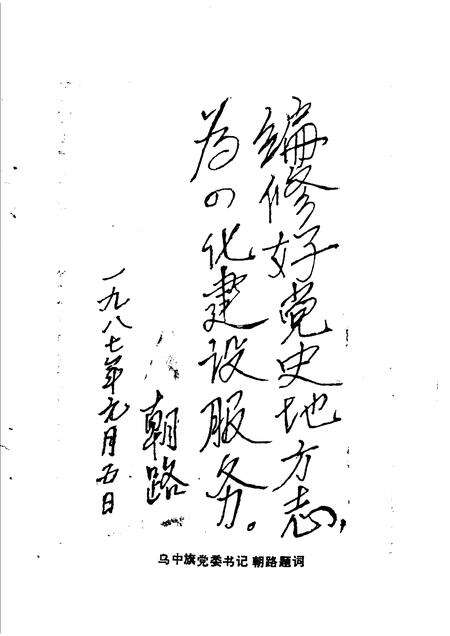 编修好党史地方志，
为四化建设服务。
朝路
一九八七年元月五日
乌中旗党委书记 朝路题词